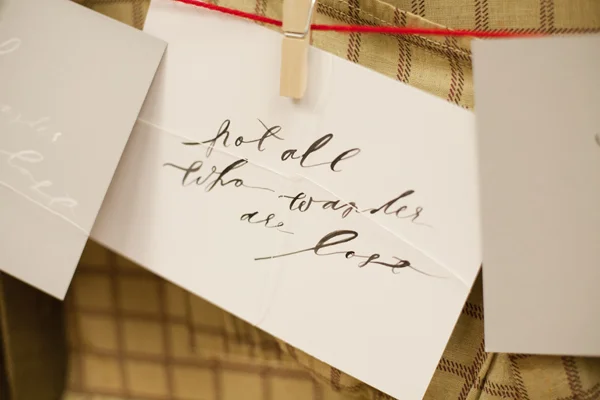 not all
who wander
are
lost